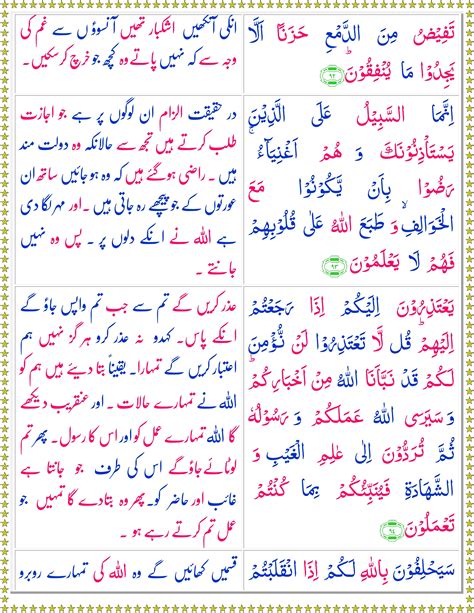 تَفِيْضُ مِنَ الدَّمْعِ حَزَنًا اَلَّا
يَجِدُوْا مَا يُنْفِقُوْنَ ۹۲
انکی آنکھیں اشکبار تھیں آنسوؤں سے غم کی
وجہ سے کہ نہیں پاتے وہ کچھ جو خرچ کرسکیں۔
اِنَّمَا السَّبِيْلُ عَلَى الَّذِيْنَ
يَسْتَاْذِنُوْنَكَ وَ هُمْ اَغْنِيَآءُ
رَضُوْا بِاَنْ يَّكُوْنُوْا مَعَ
الْخَوَالِفِ وَ طَبَعَ اللّٰهُ عَلٰى قُلُوْبِهِمْ
فَهُمْ لَا يَعْلَمُوْنَ ۹۳
در حقیقت الزام ان لوگوں پر ہے جو اجازت
طلب کرتے ہیں تجھ سے حالانکہ وہ دولت مند
ہیں۔ راضی ہوگئے ہیں کہ وہ ہوجائیں ساتھ ان
عورتوں کے جو پیچھے رہ جاتی ہیں۔ اور مہر لگا دی
ہے اللہ نے انکے دلوں پر۔ پس وہ نہیں
جانتے۔
يَعْتَذِرُوْنَ اِلَيْكُمْ اِذَا رَجَعْتُمْ
اِلَيْهِمْ قُل لَّا تَعْتَذِرُوْا لَنْ نُّؤْمِنَ
لَكُمْ قَدْ نَبَّاَنَا اللّٰهُ مِنْ اَخْبَارِكُمْ
وَ سَيَرَى اللّٰهُ عَمَلَكُمْ وَ رَسُوْلُهٗ
ثُمَّ تُرَدُّوْنَ اِلٰى عٰلِمِ الْغَيْبِ وَ
الشَّهَادَةِ فَيُنَبِّئُكُمْ بِمَا كُنْتُمْ
تَعْمَلُوْنَ ۹۴
عذر کریں گے تم سے جب تم واپس جاؤ گے
انکے پاس۔ کہدو نہ عذر کرو ہر گز نہیں ہم
اعتبار کریں گے تمہارا۔ یقیناً بتا دیئے ہیں ہم کو
اللہ نے تمہارے حالات۔ اور عنقریب دیکھے
گا اللہ تمہارے عمل کو اور اس کا رسول۔ پھر تم
لوٹائے جاؤ گے اس کی طرف جو جانتا ہے
غائب اور حاضر کو۔ پھر وہ بتادے گا تمہیں جو
عمل تم کرتے رہے ہو۔
سَيَحْلِفُوْنَ بِاللّٰهِ لَكُمْ اِذَا انْقَلَبْتُمْ
قسمیں کھائیں گے وہ اللہ کی تمہارے روبرو